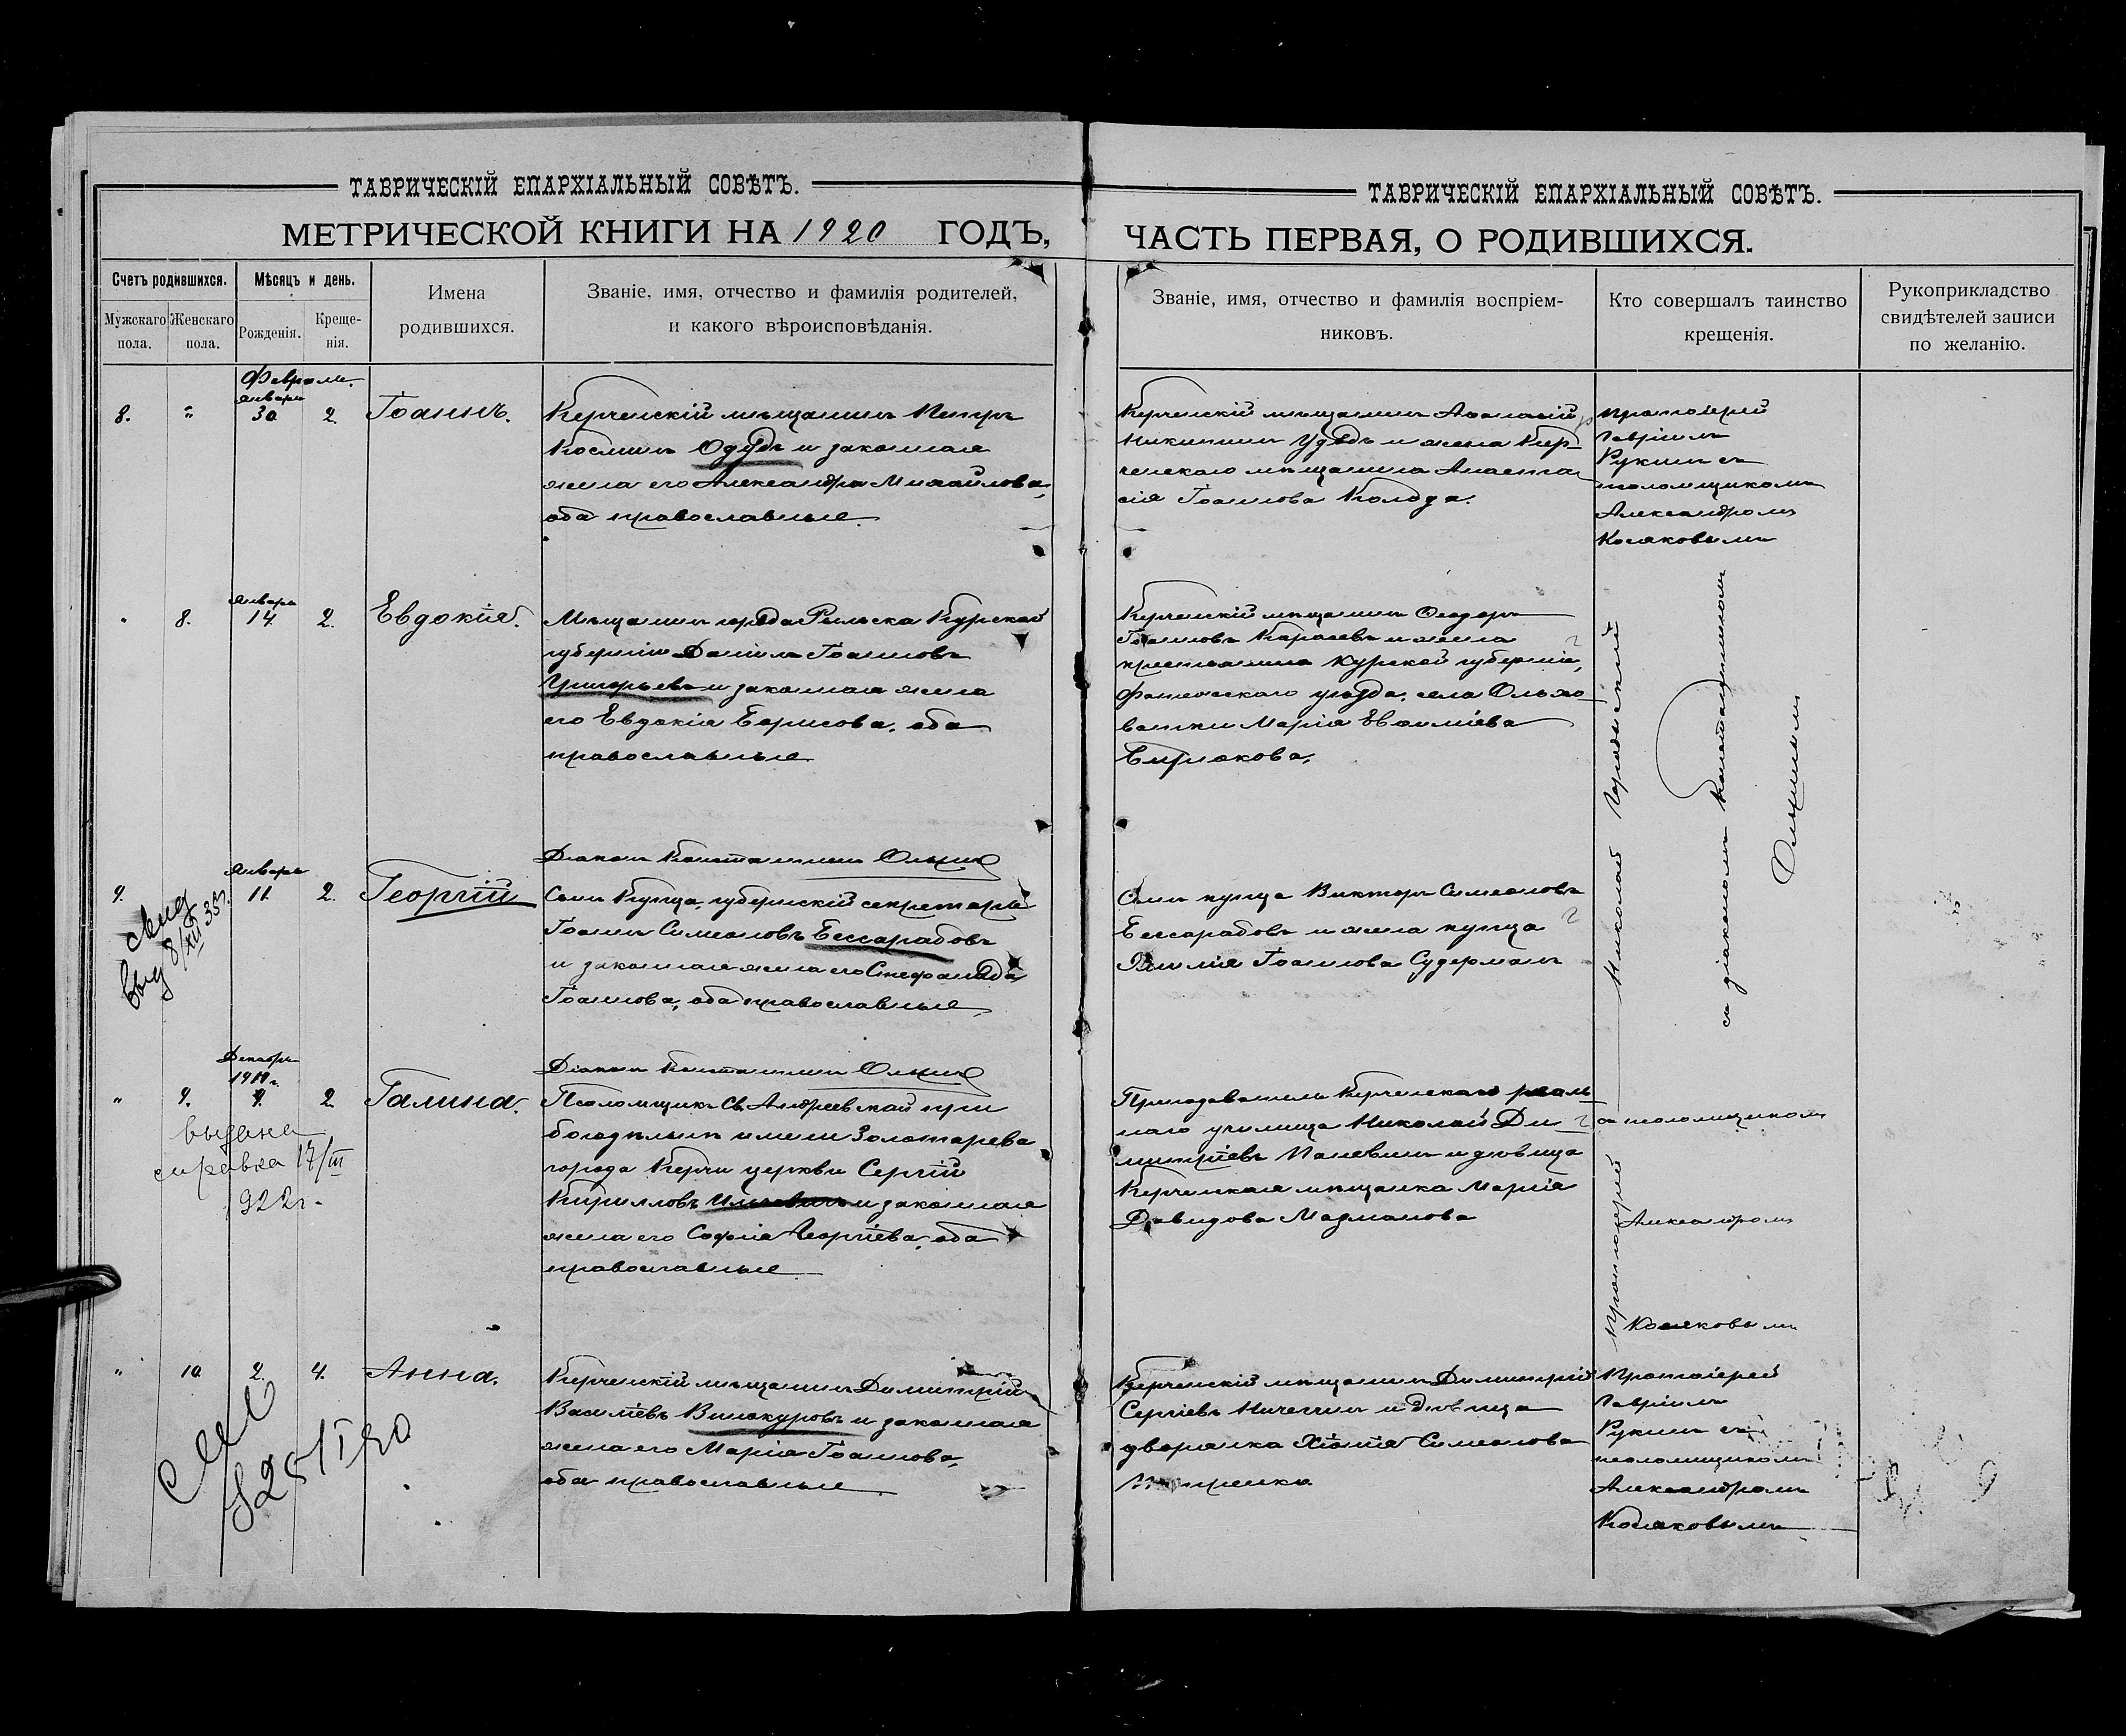 ТАВРИЧЕСКІЙ ЕПАРХІАЛЬНЫЙ СОВѢТЪ.
МЕТРИЧЕСКОЙ КНИГИ НА 1920 ГОДЪ,
Счетъ родившихся.
Мужскаго пола.
Женскаго пола.
Мѣсяцъ и день.
Рожденія.
Креще-
нія.
Имена
родившихся.
Званіе, имя, отчество и фамилія родителей,
и какого вѣроисповѣданія.
ТАВРИЧЕСКІЙ ЕПАРХІАЛЬНЫЙ СОВѢТЪ.
ЧАСТЬ ПЕРВАЯ, О РОДИВШИХСЯ.
Званіе, имя, отчество и фамилія воспріем-
никовъ.
Кто совершалъ таинство
крещенія.
Рукоприкладство
свидѣтелей записи
по желанію.
Январи
8. " 30 2. Іоаннъ.
Керченскій мѣщанинъ Петръ
Косминъ Одудъ и законная
жена его Александра Михайлова,
оба православные.
Керченскій мѣщанинъ
Никитинъ и жена Кер-
ченскаго мѣщанина Анаста-
сія Іоаннова Колода.
Протоіерей
Гавріилъ
Рукинъ съ
псаломщикомъ
Александромъ
Косяковымъ
Января
" 8. 14 2. Евдокія.
Мѣщанинъ города Рыльска Курской
губерніи Даніилъ Іоанновъ
Григорьевъ и законная жена
его Евдокія Борисова, оба
православные
Керченскій мѣщанинъ Ѳеодоръ
Іоанновъ и жена
крестьянина Курской губерніи,
уѣзда, села Ольхо-
ватки Марія
Бирюкова.
Протоіерей Николай
съ діакономъ Константиномъ
Діаконъ Константинъ
Января
9. 11. 2. Георгій
Сынъ Купца, губернскій секретарь
Іоаннъ Симеоновъ Бессарабовъ
и законная жена его Стефанида
Іоаннова, оба православные.
Сынъ купца Викторъ Симеоновъ
Бессарабовъ и жена купца
Іоаннова Судерманъ
выд
8/XII 35г.
Діаконъ Константинъ
Декабря
1919 г.
" 9. 9. 2 Галина.
Псаломщикъ Св. Андреевской при
богадѣльнѣ имени Золотарева
города Керчи церкви Сергій
Кирилловъ и законная
жена его Софія Георгіева, оба
православные.
Преподаватель Керченскаго реаль-
наго училища Николай Ди-
митріевъ и дѣвица
Керченская мѣщанка Марія
Давидова Мазманова
съ псаломщикомъ
Александромъ
Косяковымъ
выдана
справка 17/III
922 г.
" 10 2. 4. Анна.
Керченскій мѣщанинъ Димитрій
Василіевъ Винокуровъ и законная
жена его Марія Іоаннова,
оба православные.
Керченскій мѣщанинъ Димитрій
Сергіевъ и дѣвица
дворянка Хіонія Симеонова
Протоіерей
Гавріилъ
Рукинъ съ
псаломщикомъ
Александромъ
Косяковымъ